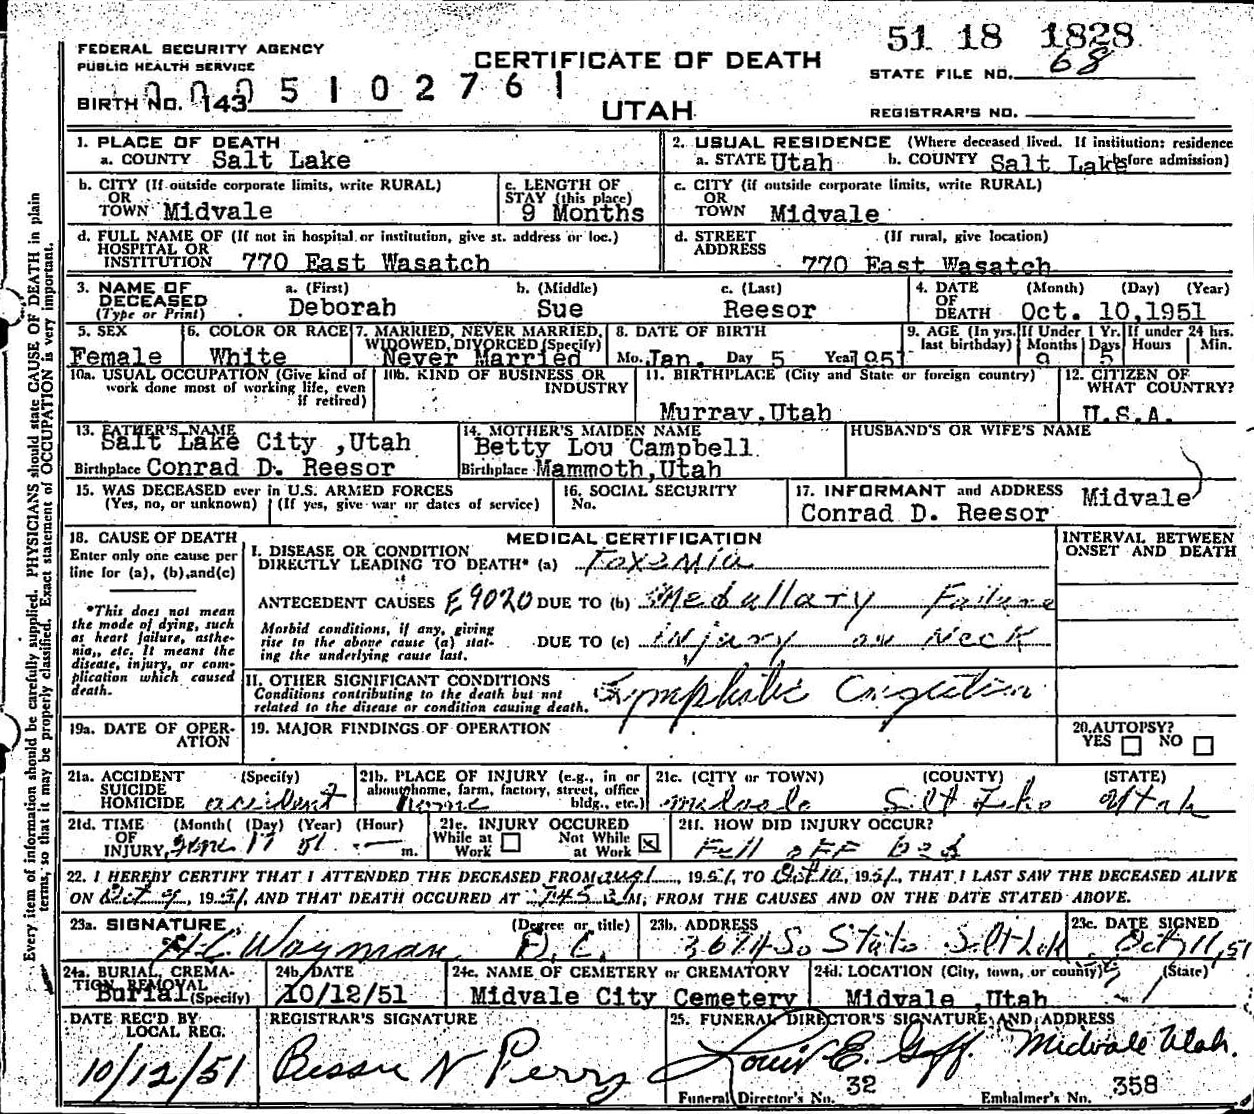 51 18 1828
FEDERAL SECURITY AGENCY
PUBLIC HEALTH SERVICE
CERTIFICATE OF DEATH
STATE FILE NO. 68
BIRTH NO. 143
0005102761
UTAH
REGISTRAR'S NO.
1. PLACE OF DEATH
a. COUNTY Salt Lake
2. USUAL RESIDENCE (Where deceased lived. If institution: residence before admission)
a. STATE Utah b. COUNTY Salt Lake
b. CITY (If outside corporate limits, write RURAL)
OR
TOWN Midvale
c. LENGTH OF
STAY (this place)
9 Months
c. CITY (if outside corporate limits, write RURAL)
OR
TOWN Midvale
d. FULL NAME OF (If not in hospital or institution, give st. address or loc.)
HOSPITAL OR
INSTITUTION 770 East Wasatch
d. STREET (If rural, give location)
ADDRESS
770 East Wasatch
3. NAME OF
DECEASED
(Type or Print)
a. (First) b. (Middle) c. (Last)
Deborah Sue Reesor
4. DATE (Month) (Day) (Year)
OF
DEATH Oct. 10,1951
5. SEX
Female
6. COLOR OR RACE
White
7. MARRIED, NEVER MARRIED,
WIDOWED, DIVORCED (Specify)
Never Married
8. DATE OF BIRTH
Mo. Jan. Day 5 Year 1951
9. AGE (In yrs. last birthday)
If Under 1 Yr.
Months Days
9 5
If under 24 hrs.
Hours Min.
10a. USUAL OCCUPATION (Give kind of
work done most of working life, even
if retired)
10b. KIND OF BUSINESS OR
INDUSTRY
11. BIRTHPLACE (City and State or foreign country)
Murray,Utah
12. CITIZEN OF
WHAT COUNTRY?
U.S.A.
13. FATHER'S NAME
Salt Lake City ,Utah
Birthplace Conrad D. Reesor
14. MOTHER'S MAIDEN NAME
Betty Lou Campbell
Birthplace Mammoth,Utah
HUSBAND'S OR WIFE'S NAME
15. WAS DECEASED ever in U.S. ARMED FORCES
(Yes, no, or unknown) (If yes, give war or dates of service)
16. SOCIAL SECURITY
No.
17. INFORMANT and ADDRESS Midvale
Conrad D. Reesor
18. CAUSE OF DEATH
Enter only one cause per
line for (a), (b),and(c)
*This does not mean
the mode of dying, such
as heart failure, asthe-
nia,, etc. It means the
disease, injury, or com-
plication which caused
death.
MEDICAL CERTIFICATION
INTERVAL BETWEEN
ONSET AND DEATH
I. DISEASE OR CONDITION
DIRECTLY LEADING TO DEATH* (a) Toxemia
ANTECEDENT CAUSES E9020 DUE TO (b) Medullary Failure
Morbid conditions, if any, giving
rise to the above cause (a) stat-
ing the underlying cause last.
DUE TO (c) injury on neck
II. OTHER SIGNIFICANT CONDITIONS
Conditions contributing to the death but not
related to the disease or condition causing death.
19a. DATE OF OPER-
ATION
19. MAJOR FINDINGS OF OPERATION
20. AUTOPSY?
YES NO
21a. ACCIDENT (Specify)
SUICIDE
HOMICIDE accident
21b. PLACE OF INJURY (e.g., in or
about home, farm, factory, street, office
bldg., etc.)
home
21c. (CITY or TOWN) (COUNTY) (STATE)
Midvale Salt Lake Utah
21d. TIME (Month( (Day) (Year) (Hour)
OF
INJURY, June 17 51 — m.
21e. INJURY OCCURED
While at Work
Not While at Work
21f. HOW DID INJURY OCCUR?
Fell off bed
22. I HEREBY CERTIFY THAT I ATTENDED THE DECEASED FROM aug 1, 1951, TO Oct 10, 1951, THAT I LAST SAW THE DECEASED ALIVE
ON Oct 9, 1951, AND THAT DEATH OCCURED AT 745 M, FROM THE CAUSES AND ON THE DATE STATED ABOVE.
23a. SIGNATURE (Degree or title)
H.C. Wayman D.C.
23b. ADDRESS
3674 So State Salt Lak
23c. DATE SIGNED
Oct 11, 51
24a. BURIAL, CREMA-
TION REMOVAL
Burial (Specify)
24b. DATE
10/12/51
24c. NAME OF CEMETERY or CREMATORY
Midvale City Cemetery
24d. LOCATION (City, town, or county) (State)
Midvale ,Utah
DATE REC'D BY
LOCAL REG.
10/12/51
REGISTRAR'S SIGNATURE
Bessie N Perry
25. FUNERAL DIRECTOR'S SIGNATURE AND ADDRESS
Louis E. Goff Midvale Utah.
Funeral Director's No. 32 Embalmer's No. 358
Every item of information should be carefully supplied. PHYSICIANS should state CAUSE OF DEATH in plain
terms, so that it may be properly classified. Exact statement of OCCUPATION is very important.